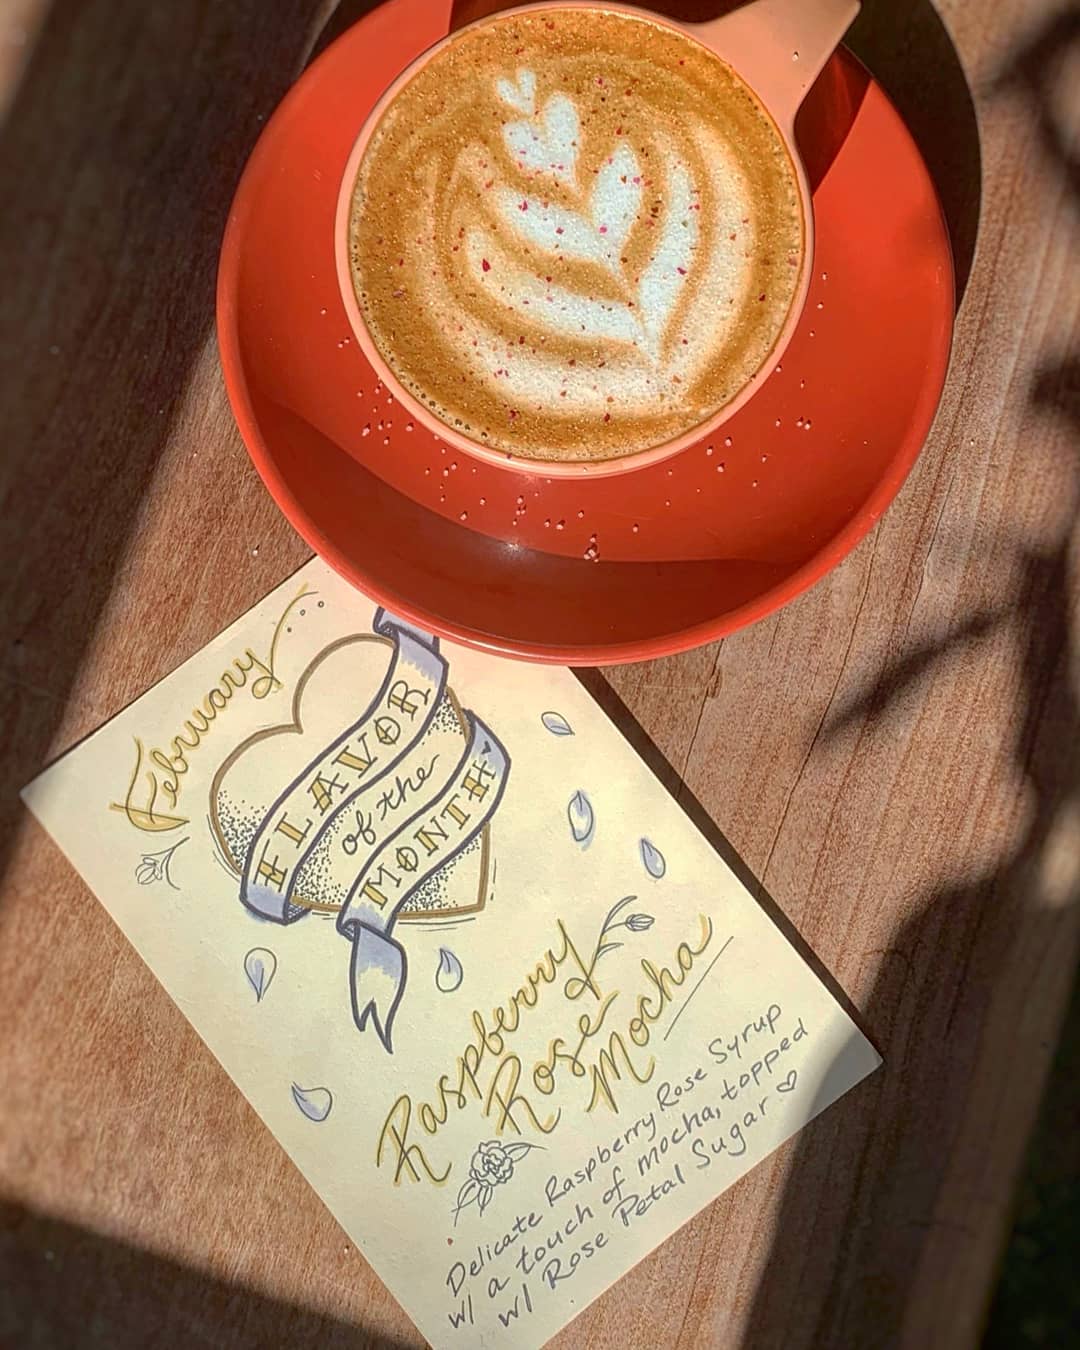 February
FLAVOR
of the
MONTH
Raspberry
Rose
Mocha
Delicate Raspberry Rose Syrup
w/ a touch of mocha, topped
w/ Rose Petal Sugar ♡